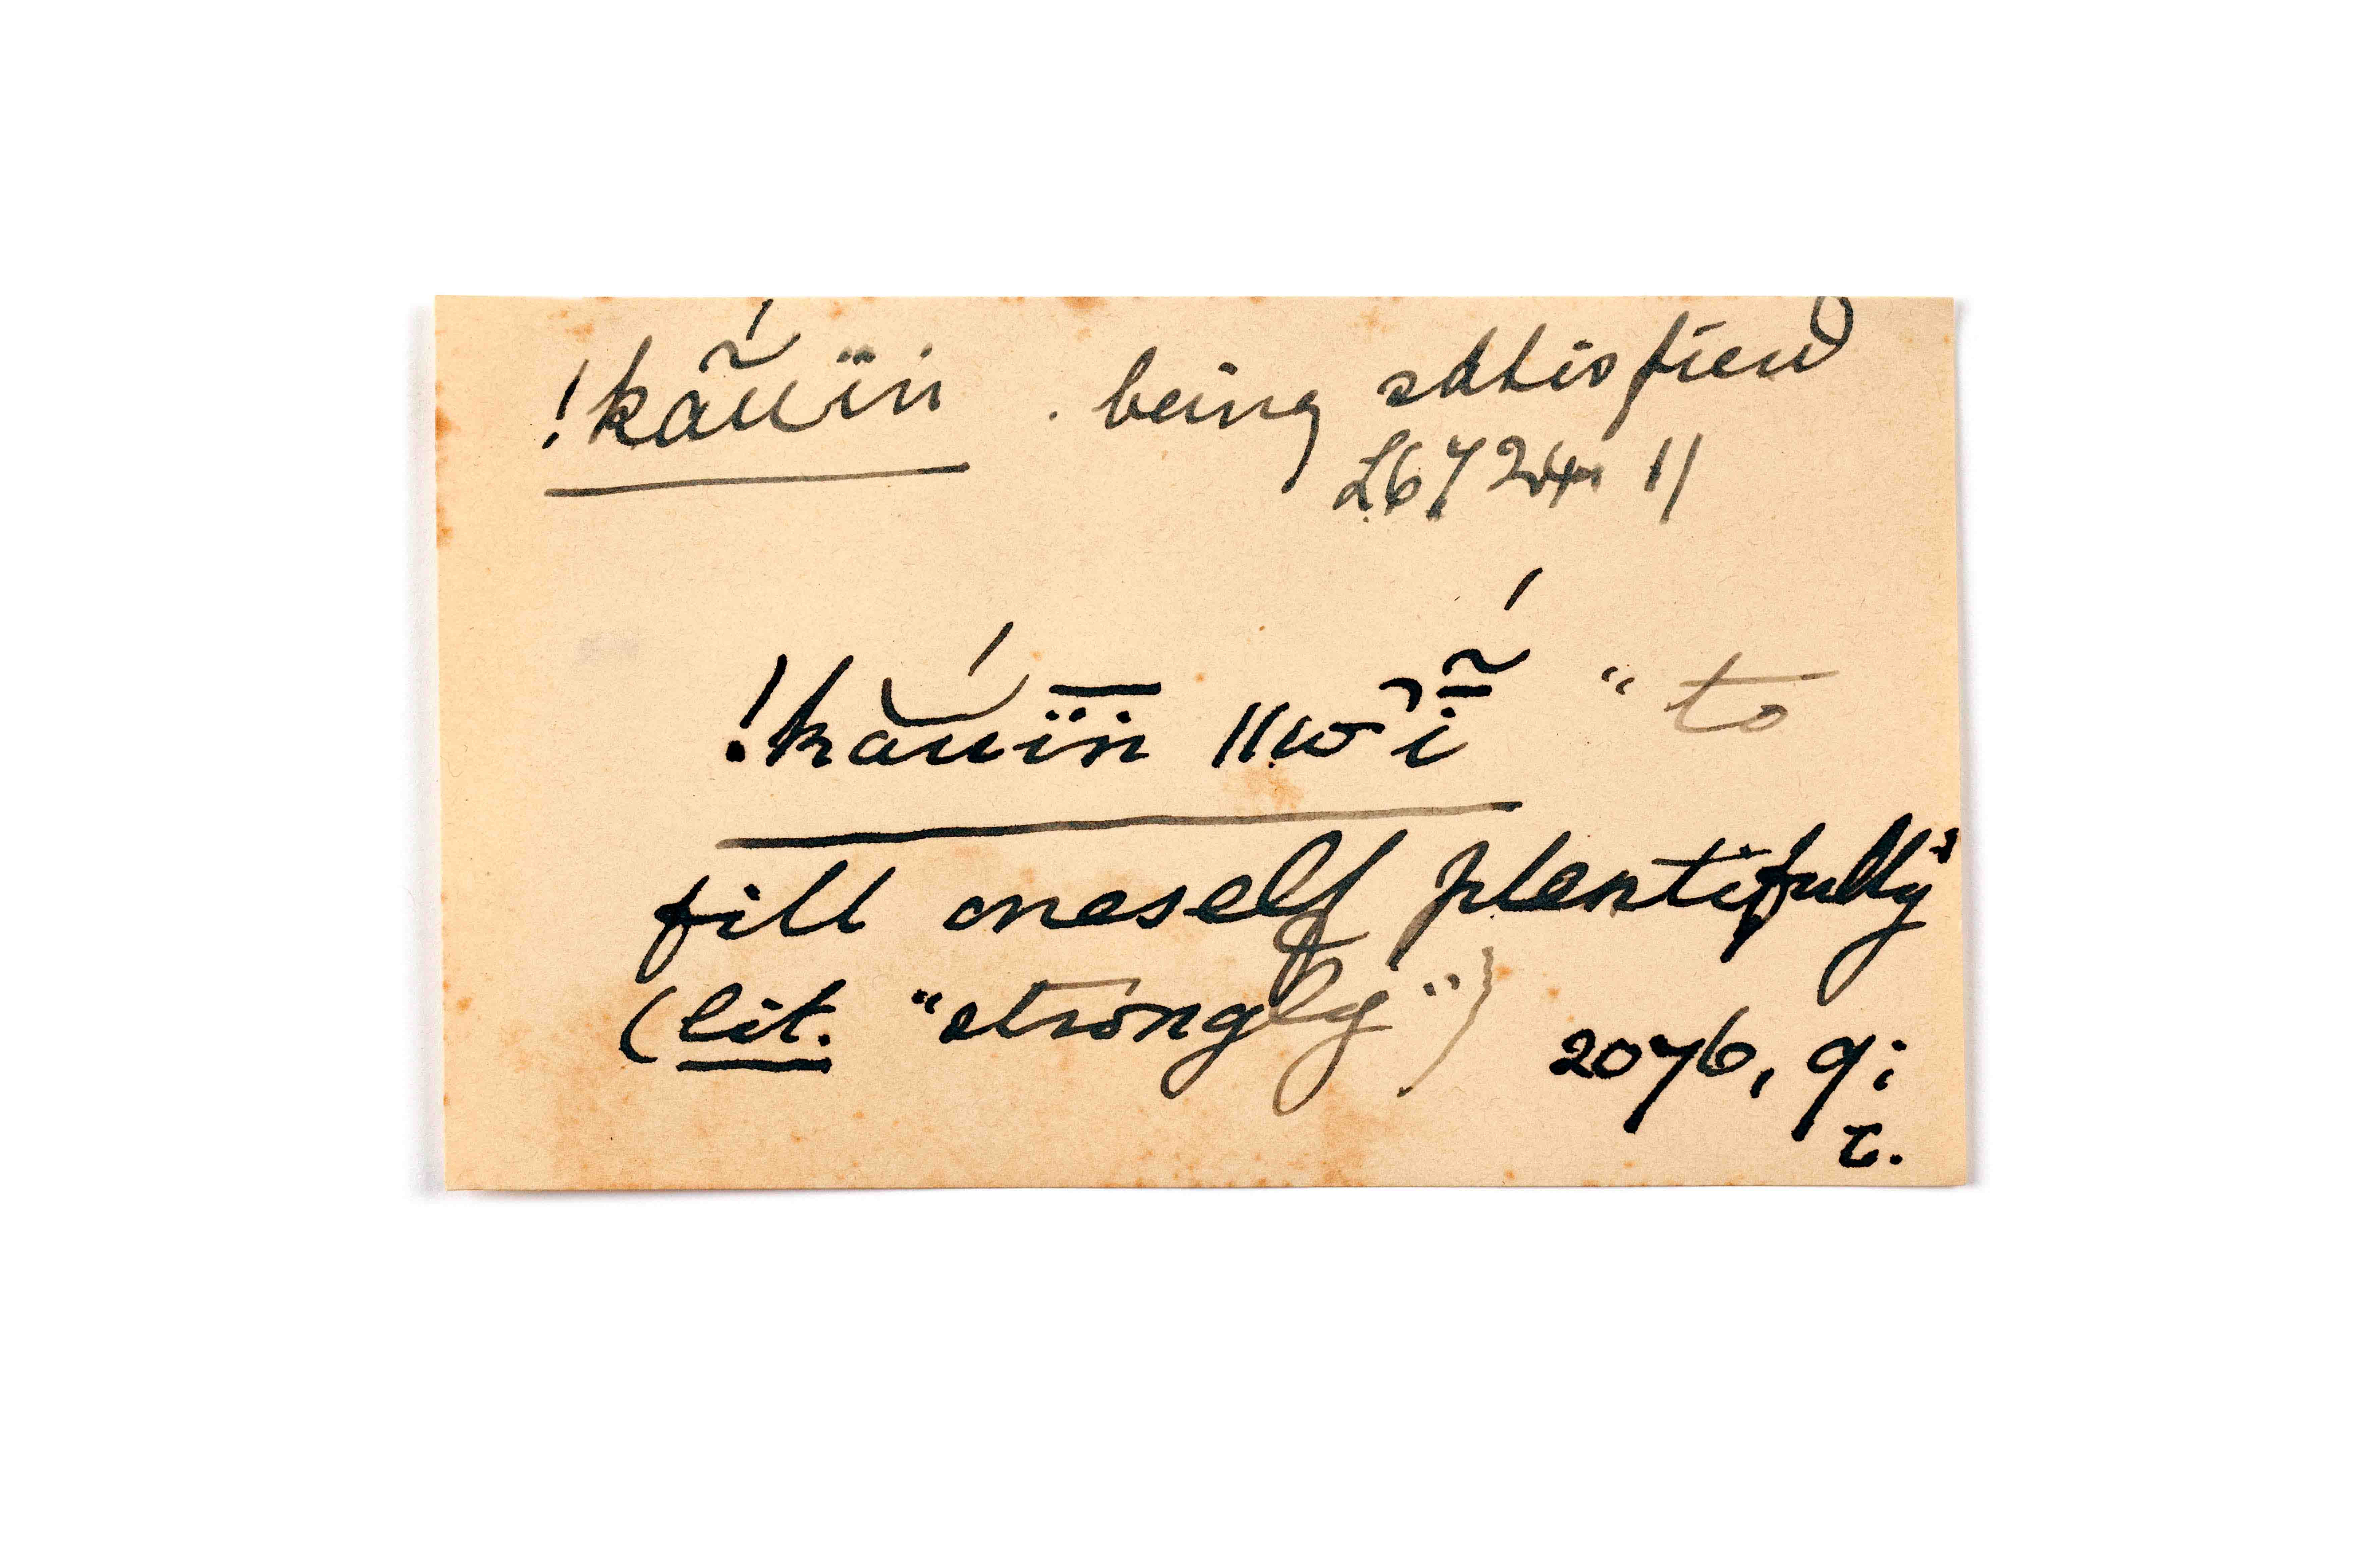 !kắ̃uïn . being satisfied
L 6724 11
!kắuïn̄ ǁwī̃́ "to
fill oneself plentifully"
(lit. "strongly") 2076, 9;
r.